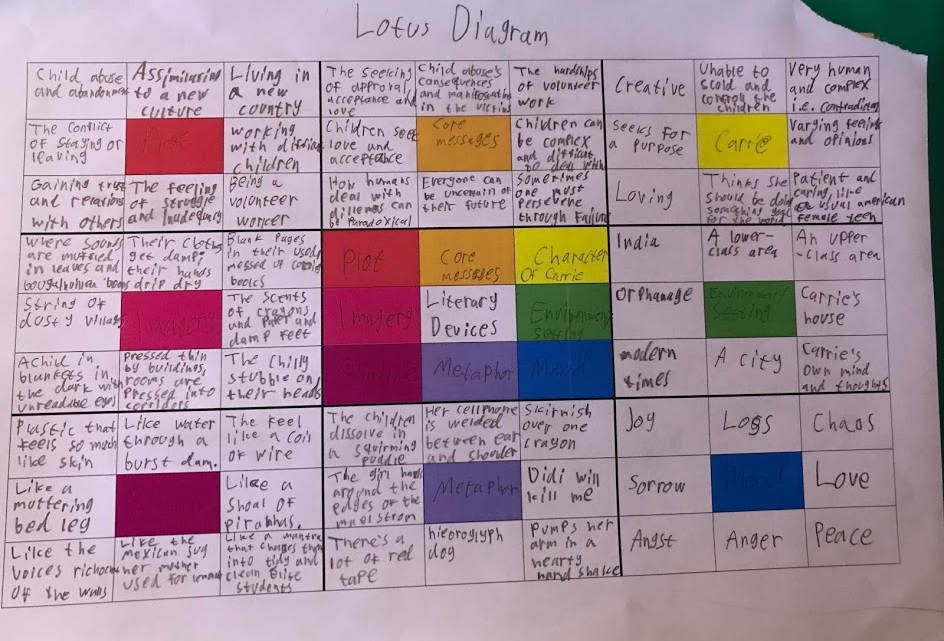 Lotus Diagram
Child abuse
and abandonment
Assimilating
to a new
culture
Living in
a new
country
The seeking
of approval,
acceptance and
love
Child abuse's
consequences
and manifestations
in the victims
The hardships
of volunteer
work
Creative
Unable to
scold and
control the
children
Very human
and complex
i.e. contradicting
The conflict
of staying or
leaving
Plot
working
with difficult
children
Children seek
love and
acceptance
Core
messages
Children can
be complex
and difficult
to deal with
Seeks for
a purpose
Carrie
Varying feelings
and opinions
Gaining trust
and relations
with others
The feeling
of struggle
and inadequacy
Being a
volunteer
worker
How humans
deal with
dilemmas can
be paradoxical
Everyone can
be uncertain of
their future
Sometimes
one must
persevere
through failure
Loving
Thinks she
should be doing
something good
for the world
Patient and
caring, like
usual american
female teen
Where sounds
are muffled
in leaves and
Their clothes
get damp,
their hands
drip dry
Blank pages
in their used,
messed up
books
Plot
Core
messages
Character
Of Carrie
India
A lower-
class area
An upper
-class area
String of
dusty villages
Imagery
The scents
of crayons
and paper and
damp feet
Imagery
Literary
Devices
Environment/
Setting
Orphanage
Environment/
Setting
Carrie's
house
A child in
blankets in
the dark with
unreadable eyes
Pressed thin
by buildings,
rooms are
pressed into
corridors
The chilly
stubble on
their heads
Metaphor
Mood
modern
times
A city
Carrie's
own mind
and thoughts
Plastic that
feels so much
like skin
Like water
through a
burst dam.
The feel
like a coil
of wire
The children
dissolve in
a squirming
puddle
Her cellphone
is welded
between ear
and shoulder
Skirmish
over one
crayon
Joy
Loss
Chaos
Like a
muttering
bed leg
Like a
shoal of
piranhas.
The girl hangs
around the
edges of the
maelstrom
Metaphor
Didi will
kill me
Sorrow
Mood
Love
Like the
voices richochet
Of the walls
Like the
mexican jug
her mother
used for
Like a mantra
that changes them
into tidy and
clean elite
students
There's a
lot of red
tape
hieroglyph
dog
pumps her
arm in a
hearty
hand shake
Angst
Anger
Peace